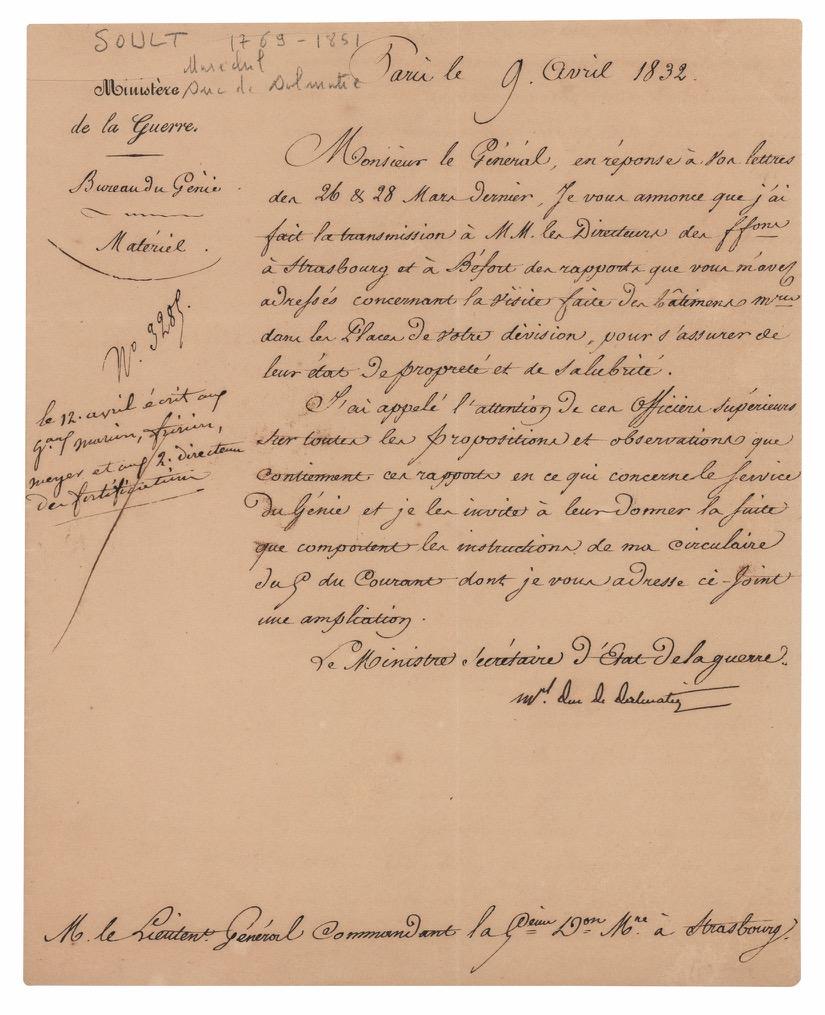 SOULT 1769-1851
Maréchal
Duc de Dalmatie
Paris le 9. Avril 1832.
Ministère
de la Guerre.
Bureau du Génie
Matériel.
N.° 3285.
le 12. avril écrit aux
g.aux marion,
meyer et aux 2. directeurs
des fortifications
Monsieur le Général, en réponse à vos lettres
des 26 & 28 Mars dernier, Je vous annonce que j'ai
fait la transmission à MM. les Directeurs des ff.ons
à Strasbourg et à Béfort des rapports que vous m'avez
adressés concernant la visite faite des bâtimens m.res
dans les Places de votre division, pour s'assurer de
leur état de propreté et de salubrité.
J'ai appelé l'attention de ces Officiers supérieurs
sur toutes les propositions et observations que
contiennent ces rapports en ce qui concerne le service
du Génie et je les invite à leur donner la suite
que comportent les instructions de ma circulaire
du 5 du Courant dont je vous adresse ci-Joint
une ampliation.
Le Ministre Secrétaire d'Etat de la guerre.
M.al duc de dalmatie
M. le Lieuten.t Général Commandant la 5.ème D.on M.re à Strasbourg.